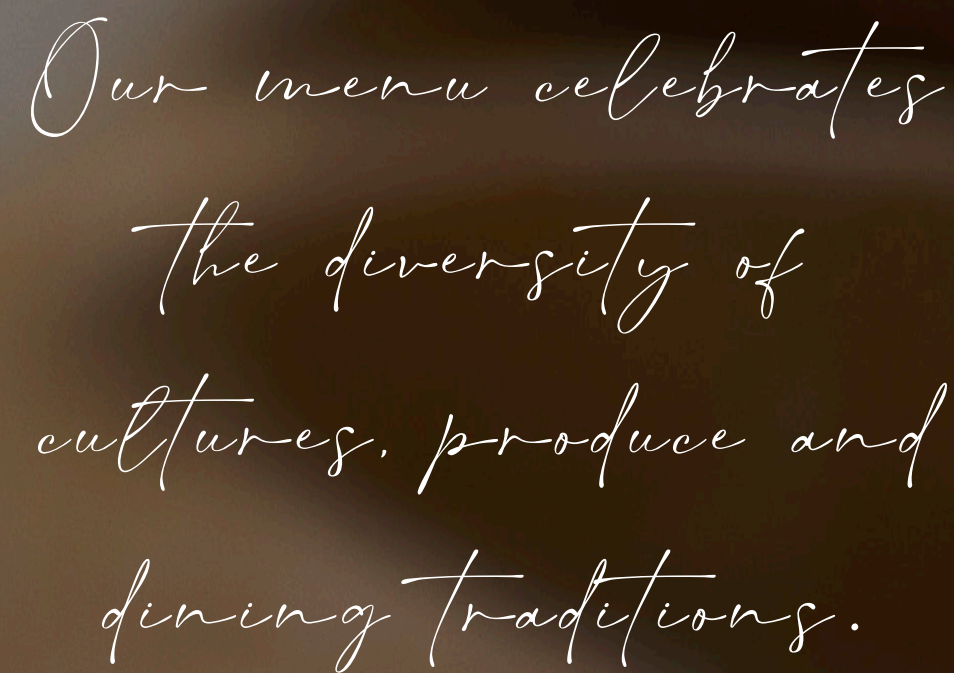 Our menu celebrates
the diversity of
cultures, produce and
dining traditions.